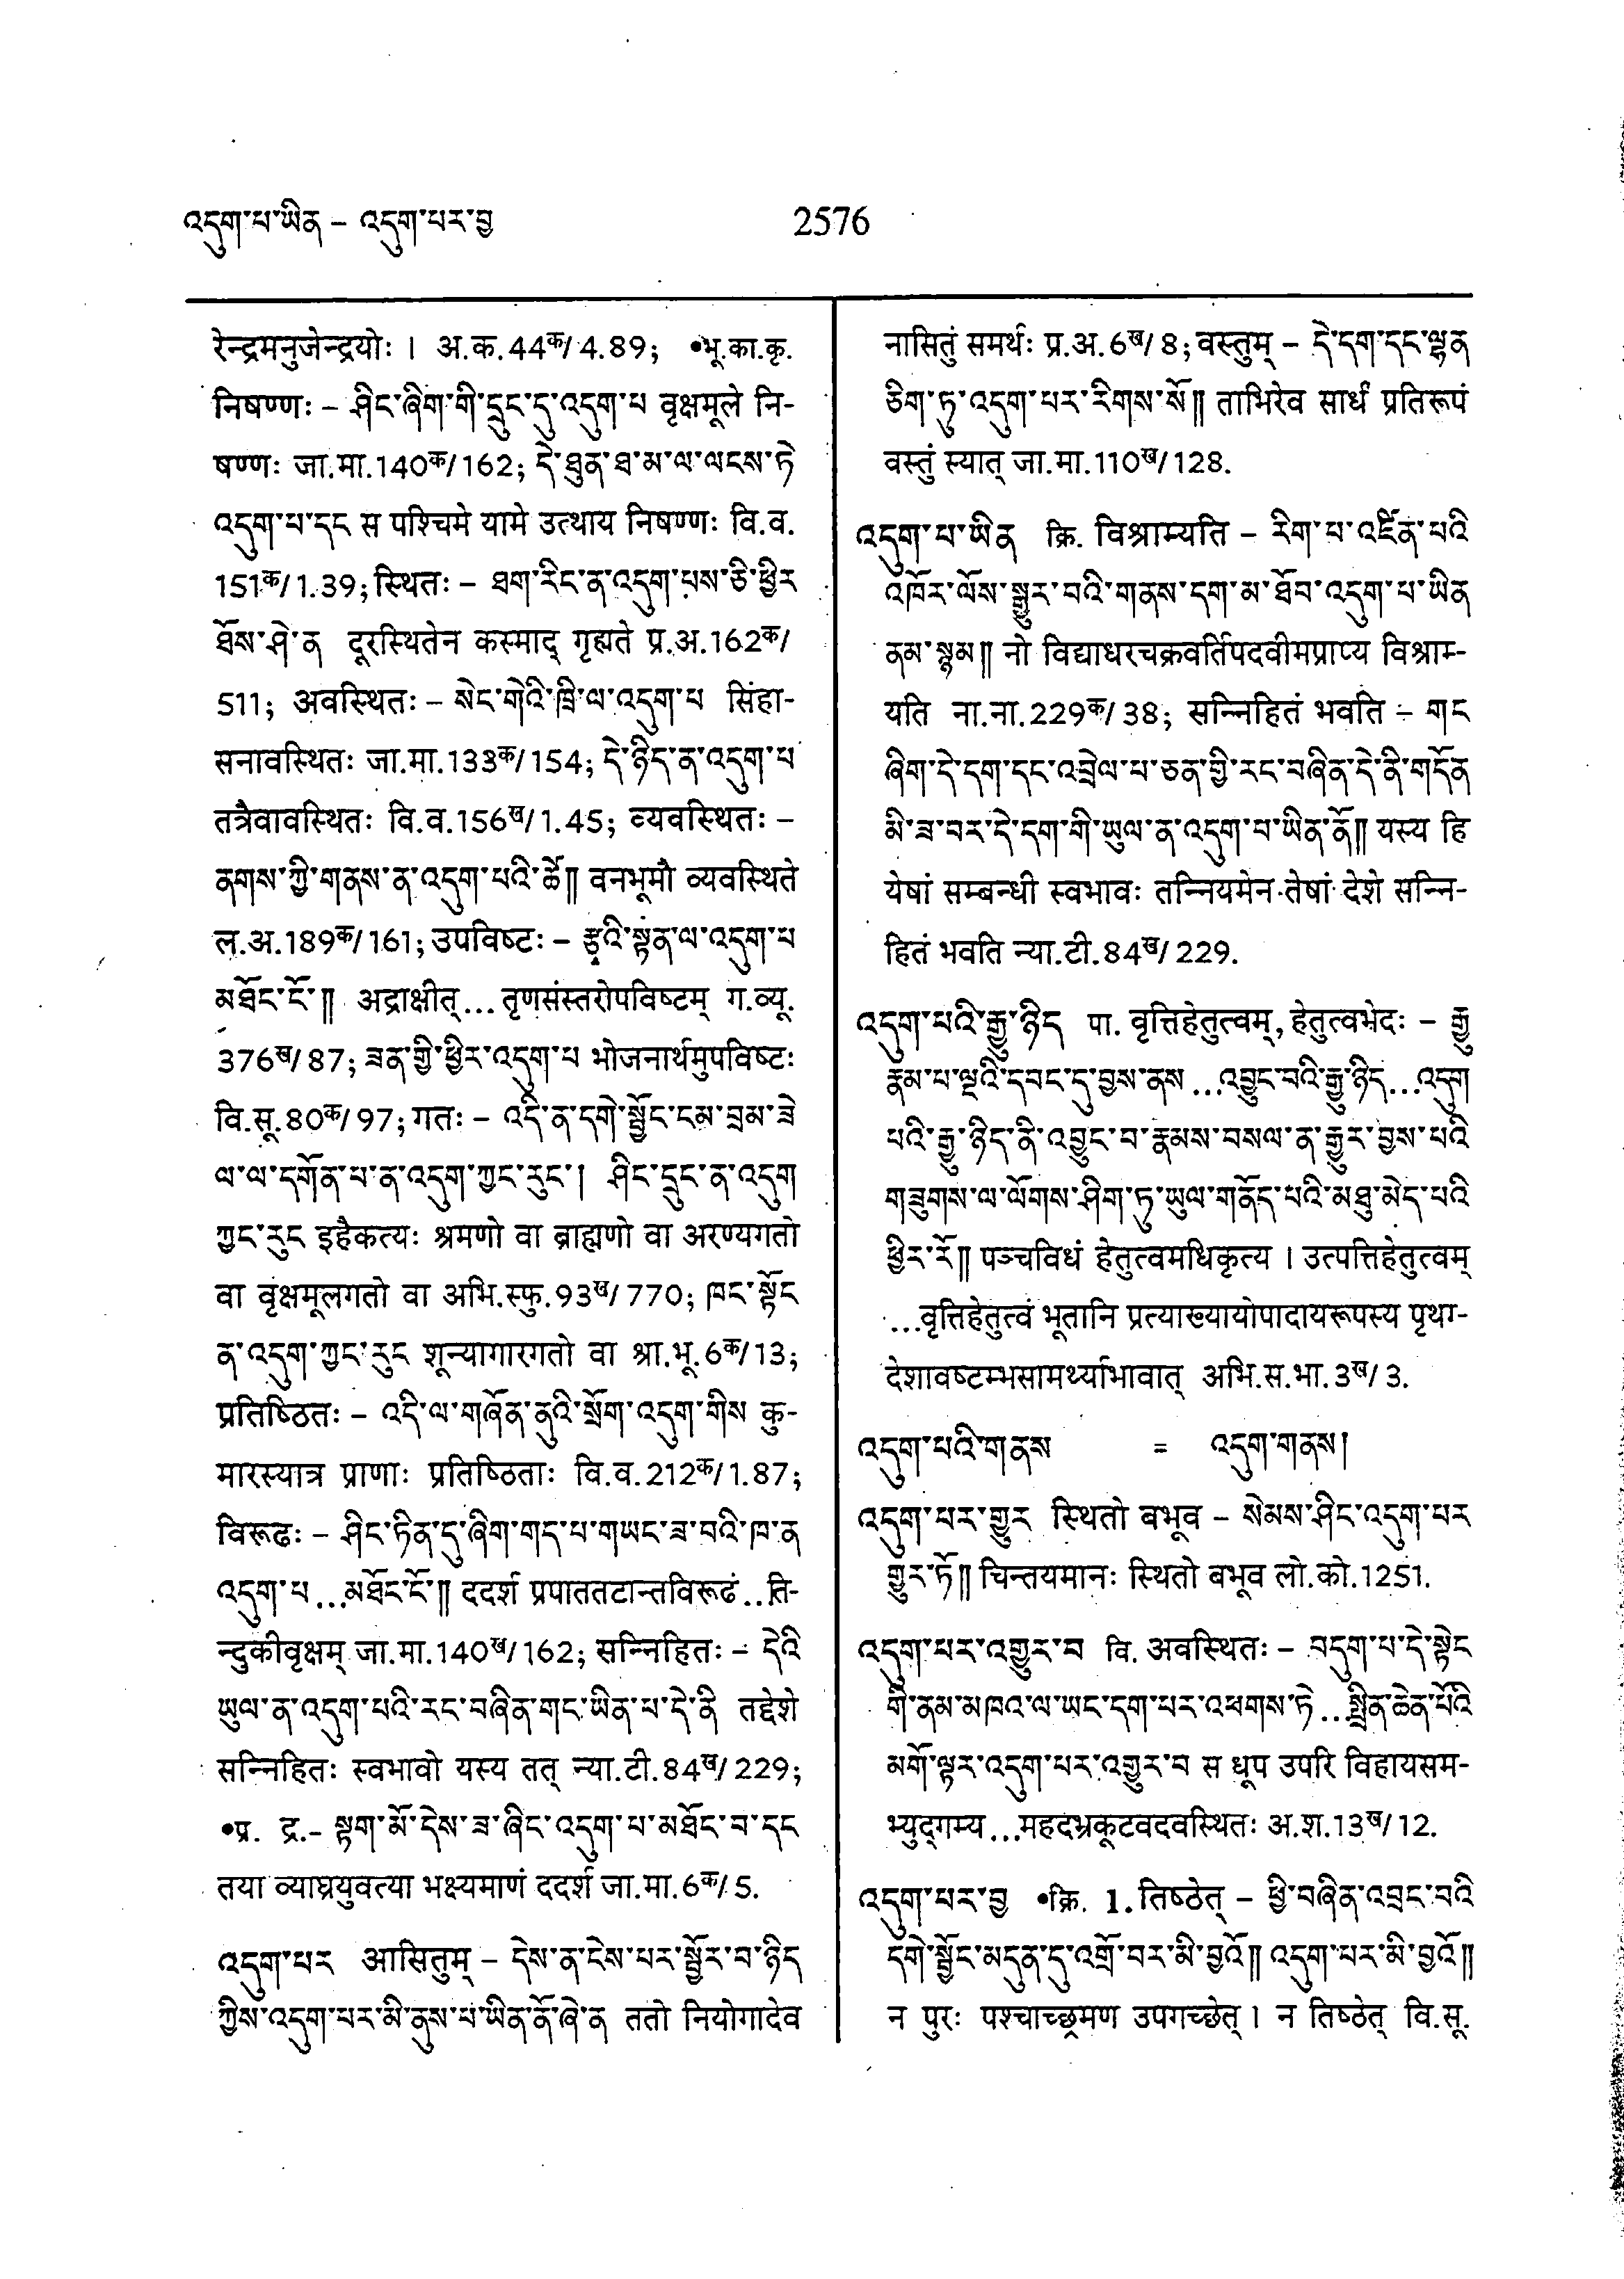 འདུག་པ་ཡིན – འདུག་པར་བྱ
2576
रेन्द्रमनुजेन्द्रयोः । अ.क.44क/4.89; •भू.का.कृ.
निषण्णः – ཤིང་ཞིག་གི་དྲུང་དུ་འདུག་པ वृक्षमूले नि-
षण्णः जा.मा.140क/162; དེ་ཐུན་ཐ་མ་ལ་ལངས་ཏེ
འདུག་པ་དང स पश्चिमे यामे उत्थाय निषण्णः वि.व.
151क/1.39; स्थितः – ཐག་རིང་ན་འདུག་པས་ཅི་ཕྱིར
ཐོས་ཤེ་ན दूरस्थितेन कस्माद् गृह्यते प्र.अ.162क/
511; अवस्थितः – སེང་གེའི་ཁྲི་ལ་འདུག་པ सिंहा-
सनावस्थितः जा.मा.133क/154; དེ་ཉིད་ན་འདུག་པ
तत्रैवावस्थितः वि.व.156ख/1.45; व्यवस्थितः –
ནགས་ཀྱི་གནས་ན་འདུག་པའི་ཚེ༎ वनभूमौ व्यवस्थिते
ल.अ.189क/161; उपविष्टः – རྩྭའི་སྟན་ལ་འདུག་པ
མཐོང་ངོ་༎ अद्राक्षीत्... तृणसंस्तरोपविष्टम् ग.व्यू.
376ख/87; ཟན་གྱི་ཕྱིར་འདུག་པ भोजनार्थमुपविष्टः
वि.सू.80क/97; गतः – འདི་ན་དགེ་སྦྱོང་ངམ་བྲམ་ཟེ
ལ་ལ་དགོན་པ་ན་འདུག་ཀྱང་རུང་། ཤིང་དྲུང་ན་འདུག
ཀྱང་རུང इहैकत्यः श्रमणो वा ब्राह्मणो वा अरण्यगतो
वा वृक्षमूलगतो वा अभि.स्फु.93ख/770; ཁང་སྟོང
ན་འདུག་ཀྱང་རུང शून्यागारगतो वा श्रा.भू.6क/13;
प्रतिष्ठितः – འདི་ལ་གཞོན་ནུའི་སྲོག་འདུག་གིས कु-
मारस्यात्र प्राणाः प्रतिष्ठिताः वि.व.212क/1.87;
विरूढः – ཤིང་ཏིན་དུ་ཞིག་གད་པ་གཡང་ཟ་བའི་ཁ་ན
འདུག་པ...མཐོང་ངོ་༎ ददर्श प्रपाततटान्तविरूढं...ति-
न्दुकीवृक्षम् जा.मा.140ख/162; सन्निहितः – དེའི
ཡུལ་ན་འདུག་པའི་རང་བཞིན་གང་ཡིན་པ་དེ་ནི तद्देशे
सन्निहितः स्वभावो यस्य तत् न्या.टी.84ख/229;
•प्र. द्र.- སྟག་མོ་དེས་ཟ་ཞིང་འདུག་པ་མཐོང་བ་དང
तया व्याघ्रयुवत्या भक्ष्यमाणं ददर्श जा.मा.6क/5.
འདུག་པར आसितुम् – དེས་ན་ངེས་པར་སྦྱོར་བ་ཉིད
ཀྱིས་འདུག་པར་མི་ནུས་པ་ཡིན་ནོ་ཞེ་ན ततो नियोगादेव
नासितुं समर्थः प्र.अ.6ख/8; वस्तुम् – དེ་དག་དང་ལྷན
ཅིག་ཏུ་འདུག་པར་རིགས་སོ༎ ताभिरेव सार्धं प्रतिरूपं
वस्तुं स्यात् जा.मा.110ख/128.
འདུག་པ་ཡིན क्रि. विश्राम्यति – རིག་པ་འཛིན་པའི
འཁོར་ལོས་སྒྱུར་བའི་གནས་དག་མ་ཐོབ་འདུག་པ་ཡིན
ནམ་སྙམ༎ नो विद्याधरचक्रवर्तिपदवीमप्राप्य विश्राम-
यति ना.ना.229क/38; सन्निहितं भवति – གང
ཞིག་དེ་དག་དང་འབྲེལ་པ་ཅན་གྱི་རང་བཞིན་དེ་ནི་གདོན
མི་ཟ་བར་དེ་དག་གི་ཡུལ་ན་འདུག་པ་ཡིན་ནོ༎ यस्य हि
येषां सम्बन्धी स्वभावः तन्नियमेन तेषां देशे सन्नि-
हितं भवति न्या.टी.84ख/229.
འདུག་པའི་རྒྱུ་ཉིད पा. वृत्तिहेतुत्वम्, हेतुत्वभेदः – རྒྱུ
རྣམ་པ་ལྔའི་དབང་དུ་བྱས་ནས...འབྱུང་བའི་རྒྱུ་ཉིད...འདུག
པའི་རྒྱུ་ཉིད་ནི་འབྱུང་བ་རྣམས་བསལ་ན་རྒྱུར་བྱས་པའི
གཟུགས་ལ་ལོགས་ཤིག་ཏུ་ཡུལ་གནོད་པའི་མཐུ་མེད་པའི
ཕྱིར་རོ༎ पञ्चविधं हेतुत्वमधिकृत्य । उत्पत्तिहेतुत्वम्
...वृत्तिहेतुत्वं भूतानि प्रत्याख्यायोपादायरूपस्य पृथग-
देशावष्टम्भसामर्थ्याभावात् अभि.स.भा.3ख/3.
འདུག་པའི་གནས = འདུག་གནས།
འདུག་པར་གྱུར स्थितो बभूव – སེམས་ཤིང་འདུག་པར
གྱུར་ཏོ༎ चिन्तयमानः स्थितो बभूव लो.को.1251.
འདུག་པར་འགྱུར་བ वि. अवस्थितः – བདུག་པ་དེ་སྟེང
གི་ནམ་མཁའ་ལ་ཡང་དག་པར་འཕགས་ཏེ...སྤྲིན་ཆེན་པོའི
མགོ་ལྟར་འདུག་པར་འགྱུར་བ स धूप उपरि विहायसम-
भ्युद्गम्य...महदभ्रकूटवदवस्थितः अ.श.13ख/12.
འདུག་པར་བྱ •क्रि. 1. तिष्ठेत् – ཕྱི་བཞིན་འབྲང་བའི
དགེ་སྦྱོང་མདུན་དུ་འགྲོ་བར་མི་བྱའོ༎ འདུག་པར་མི་བྱའོ༎
न पुरः पश्चाच्छ्रमण उपगच्छेत् । न तिष्ठेत् वि.सू.